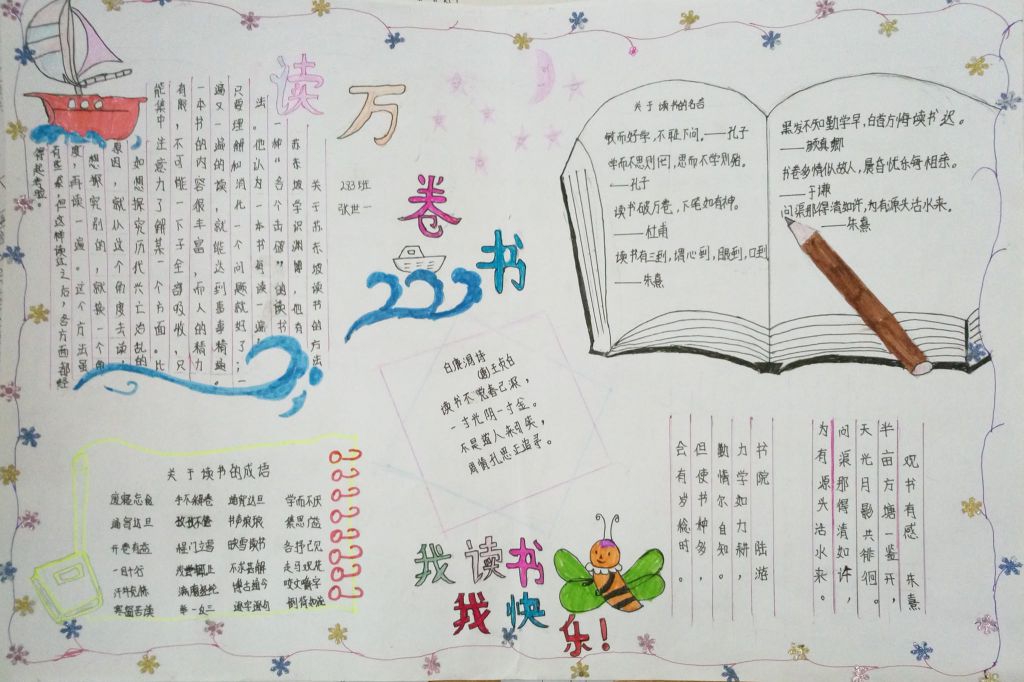 读万卷书
283班
张世一
关于苏东坡读书的方法
苏东坡学识渊博，也有
一种“各个击破”的读书
法。他认为一本书每读一遍，
只要理解和消化一个问题就好了；一
遍又一遍的读，就能达到事事精通。
一本书的内容很丰富，而人的精力
有限，不可能一下子全部吸收，只
能集中注意力了解某一个方面。比
如想探究历代兴亡治乱的
原因，就从这个角度去读；
想探究别的，就换一个角
度，再读一遍。这个方法虽
有些笨，但这样读过之后，各方面都经
得起考验。
关于读书的名言
敏而好学，不耻下问。——孔子
学而不思则罔，思而不学则殆。
——孔子
读书破万卷，下笔如有神。
——杜甫
读书有三到，谓心到，眼到，口到
——朱熹
黑发不知勤学早，白首方悔读书迟。
——颜真卿
书卷多情似故人，晨昏忧乐每相亲。
——于谦
问渠那得清如许，为有源头活水来。
——朱熹
白鹿洞诗
(唐)王贞白
读书不觉春已深，
一寸光阴一寸金。
不是道人来引笑，
周情孔思正追寻。
关于读书的成语
废寝忘食 手不释卷 通宵达旦 学而不厌
通宵达旦 孜孜不倦 书声琅琅 集思广益
开卷有益 程门立雪 映雪读书 各抒己见
一目十行 不求甚解 走马观花
博古通今 咬文嚼字
寒窗苦读 举一反三 逐字逐句 倒背如流
我读书
我快乐！
观书有感 朱熹
半亩方塘一鉴开，
天光月影共徘徊。
问渠那得清如许，
为有源头活水来。
书院 陆游
力学如力耕，
勤惰尔自知。
但使书种多，
会有岁稔时。